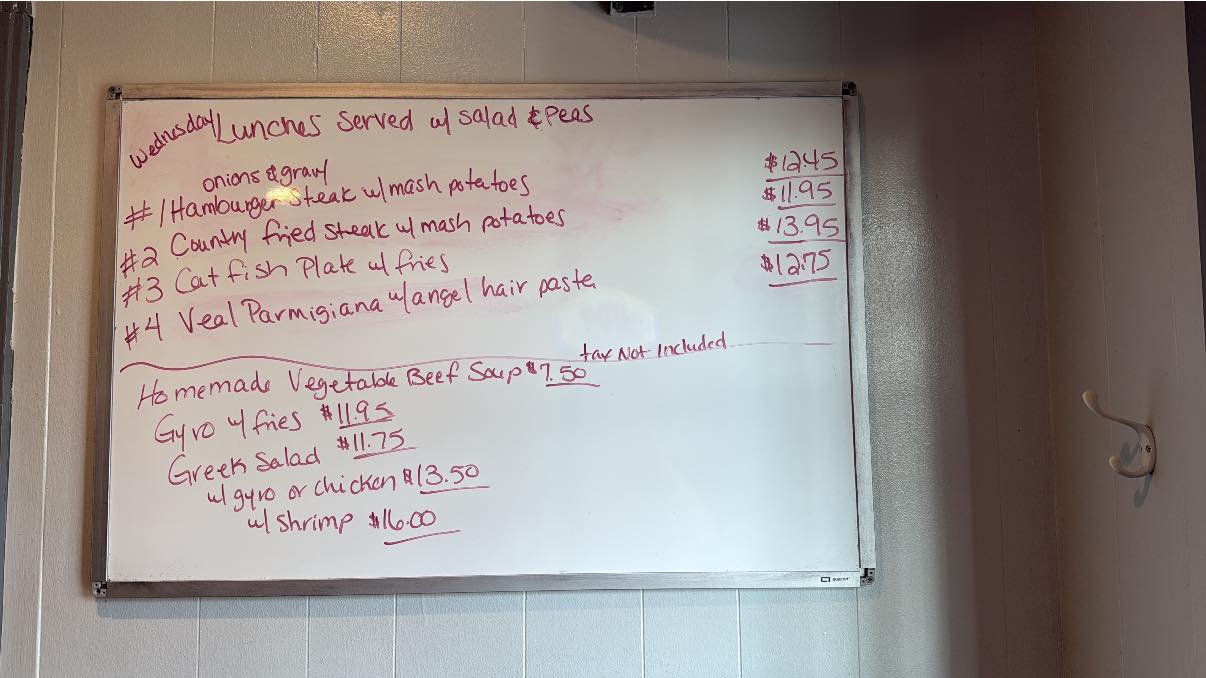 Wednesday Lunches served w/ salad & Peas
onions & gravy
#1 Hamburger steak w/ mash potatoes $12.45
#2 Country fried steak w/ mash potatoes $11.95
#3 Cat fish Plate w/ fries $13.95
#4 Veal Parmigiana w/ angel hair pasta $12.75
tax Not Included
Homemade Vegetable Beef Soup $7.50
Gyro w/ fries $11.95
Greek Salad $11.75
w/ gyro or chicken $13.50
w/ Shrimp $16.00